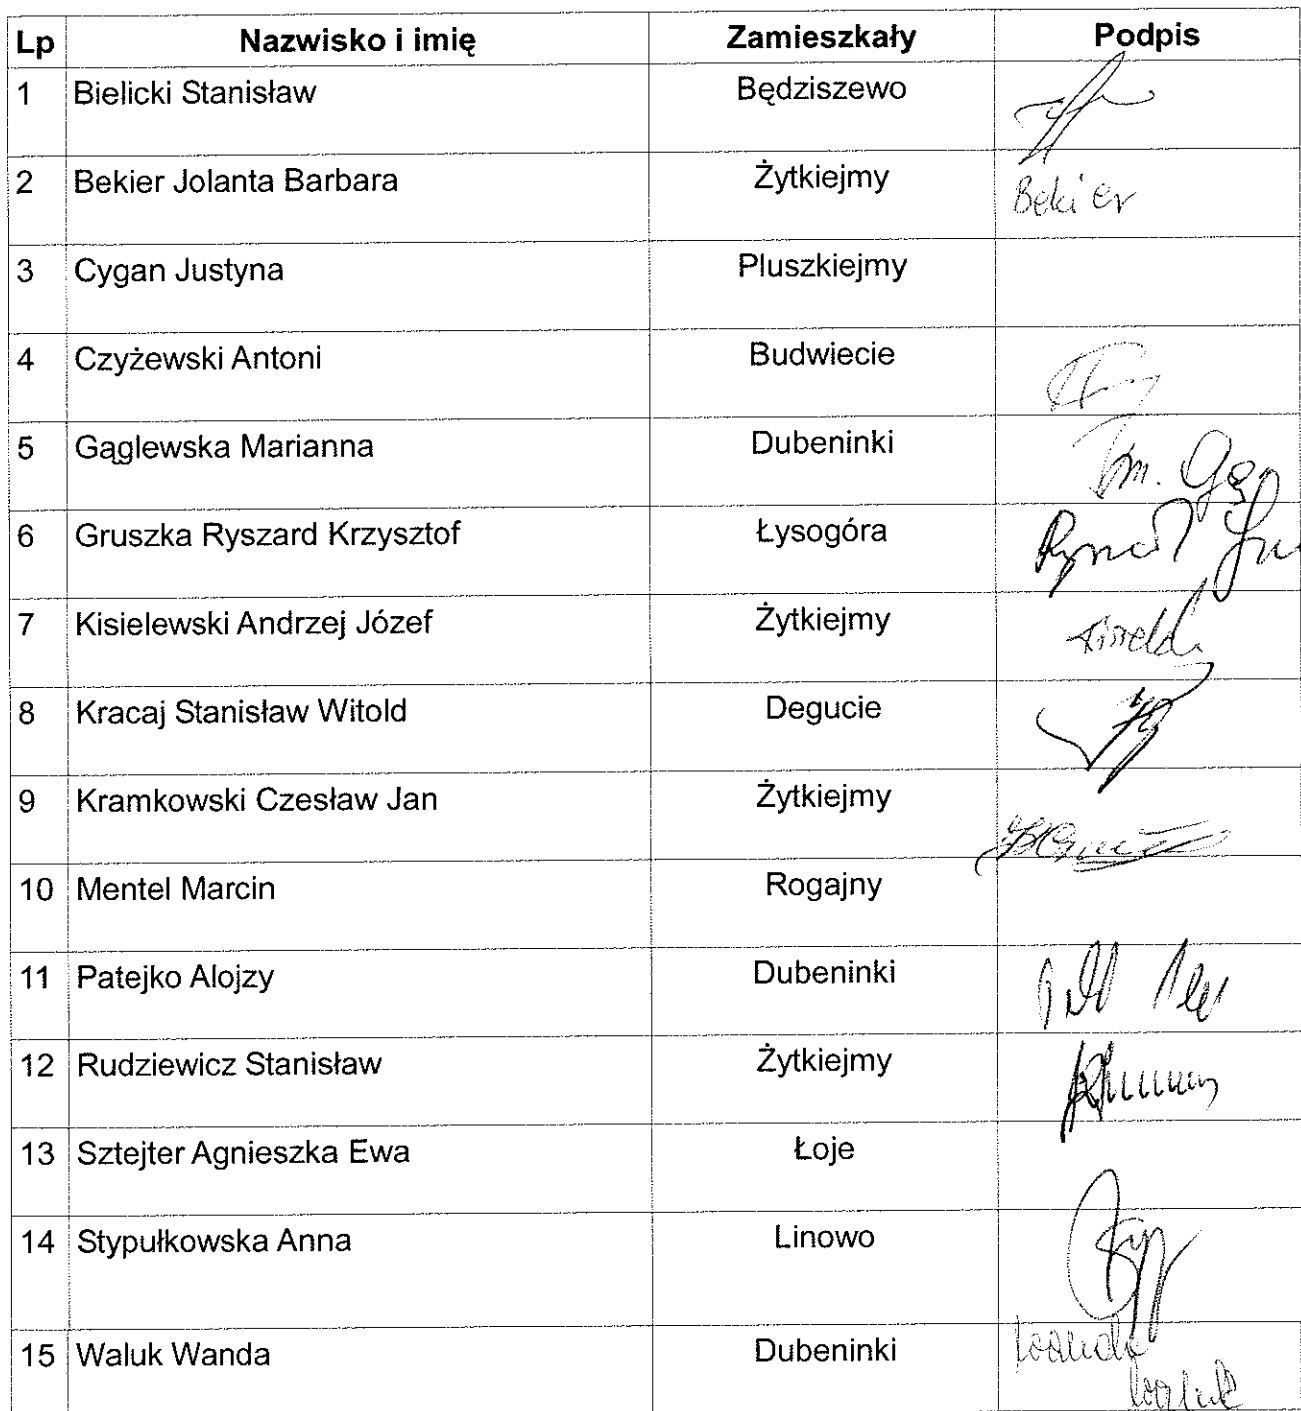 Lp Nazwisko i imię Zamieszkały Podpis
1 Bielicki Stanisław Będziszewo
2 Bekier Jolanta Barbara Żytkiejmy Bekier
3 Cygan Justyna Pluszkiejmy
4 Czyżewski Antoni Budwiecie
5 Gąglewska Marianna Dubeninki
6 Gruszka Ryszard Krzysztof Łysogóra
7 Kisielewski Andrzej Józef Żytkiejmy
8 Kracaj Stanisław Witold Degucie
9 Kramkowski Czesław Jan Żytkiejmy
10 Mentel Marcin Rogajny
11 Patejko Alojzy Dubeninki
12 Rudziewicz Stanisław Żytkiejmy
13 Sztejter Agnieszka Ewa Łoje
14 Stypułkowska Anna Linowo
15 Waluk Wanda Dubeninki Wanda
Waluk